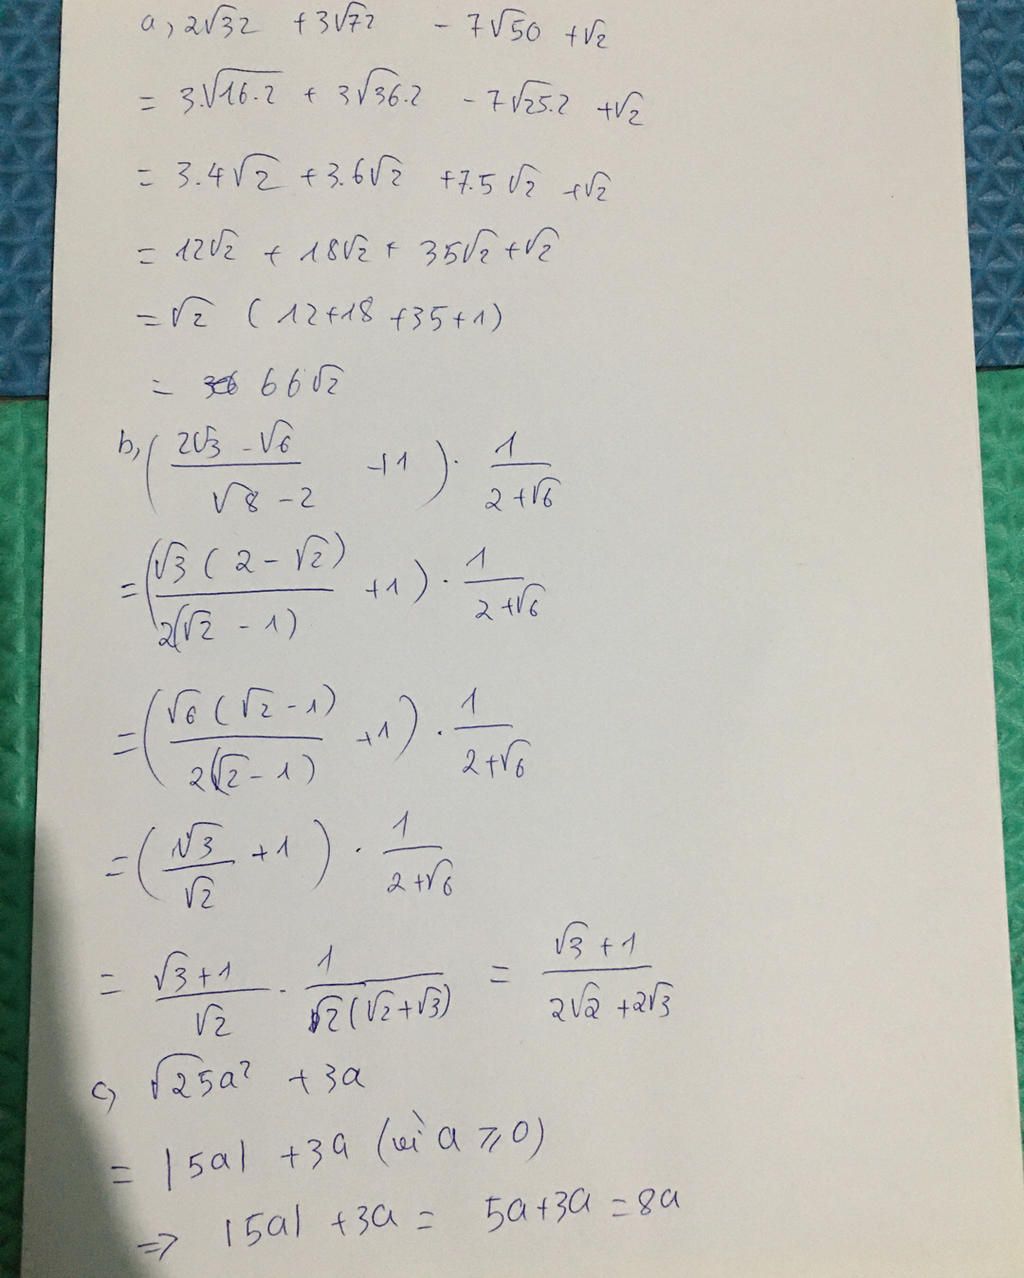 a, 2√32 + 3√72 - 7√50 + √2
= 3.√16.2 + 3√36.2 - 7√25.2 + √2
= 3.4√2 + 3.6√2 + 7.5√2 + √2
= 12√2 + 18√2 + 35√2 + √2
= √2 (12+18+35+1)
= 66√2
b, ((2√3 - √6)/(√8 - 2) + 1) . 1/(2+√6)
= (√3(2 - √2)/2(√2 - 1) + 1) . 1/(2+√6)
= (√6(√2 - 1)/2(√2 - 1) + 1) . 1/(2+√6)
= (√3/√2 + 1) . 1/(2+√6)
= (√3+1)/√2 . 1/(√2(√2+√3)) = (√3+1)/(2√2+2√3)
c, √25a² + 3a
= |5a| + 3a (vì a ⩾ 0)
=> |5a| + 3a = 5a+3a = 8a